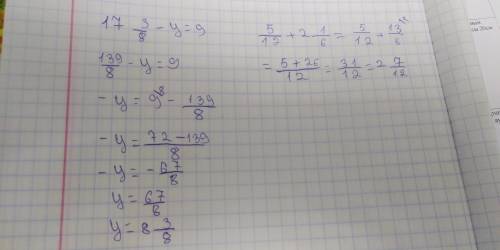 17 3/8 - y = 9
139/8 - y = 9
- y = 9⁸ - 139/8
- y = 72 - 139/8
- y = - 67/8
y = 67/8
y = 8 3/8
5/12 + 2 1/6 = 5/12 + 13/6
= 5 + 26/12 = 31/12 = 2 7/12